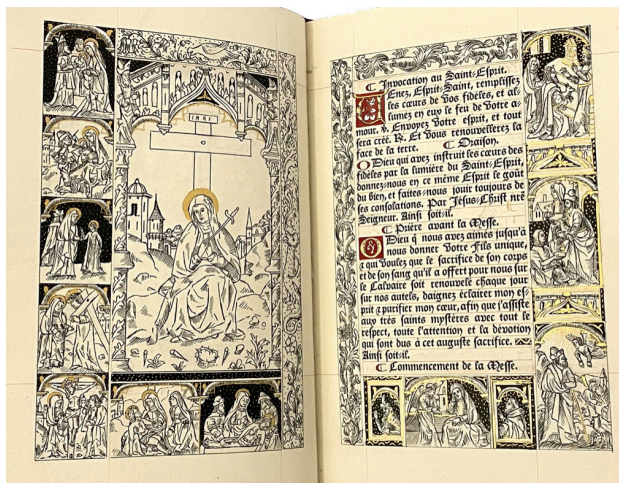 INRI
¶ Invocation au Saint-Esprit.
VEnez, Esprit-Saint, remplissez
les cœurs de vos fidèles, et al-
lumez en eux le feu de votre a-
mour. ℣. Envoyez votre esprit, et tout
sera créé. ℟. Et vous renouvellerez la
face de la terre. ¶ Oraison.
O Dieu qui avez instruit les cœurs des
fidèles par la lumière du Saint-Esprit,
donnez-nous en ce même Esprit le goût
du bien, et faites-nous jouir toujours de
ses consolations. Par Jésus-Christ nr̃e
Seigneur. Ainsi soit-il.
¶ Prière avant la Messe.
O Dieu q̃ nous avez aimés jusqu'à
nous donner votre Fils unique,
⁊ qui voulez que le sacrifice de son corps
et de son sang qu'il a offert pour nous sur
le Calvaire soit renouvelé chaque jour
sur nos autels, daignez éclairer mon es-
prit ⁊ purifier mon cœur, afin que j'assiste
aux très saints mystères avec tout le
respect, toute l'attention et la dévotion
qui sont dus à cet auguste sacrifice.
Ainsi soit-il.
¶ Commencement de la Messe.